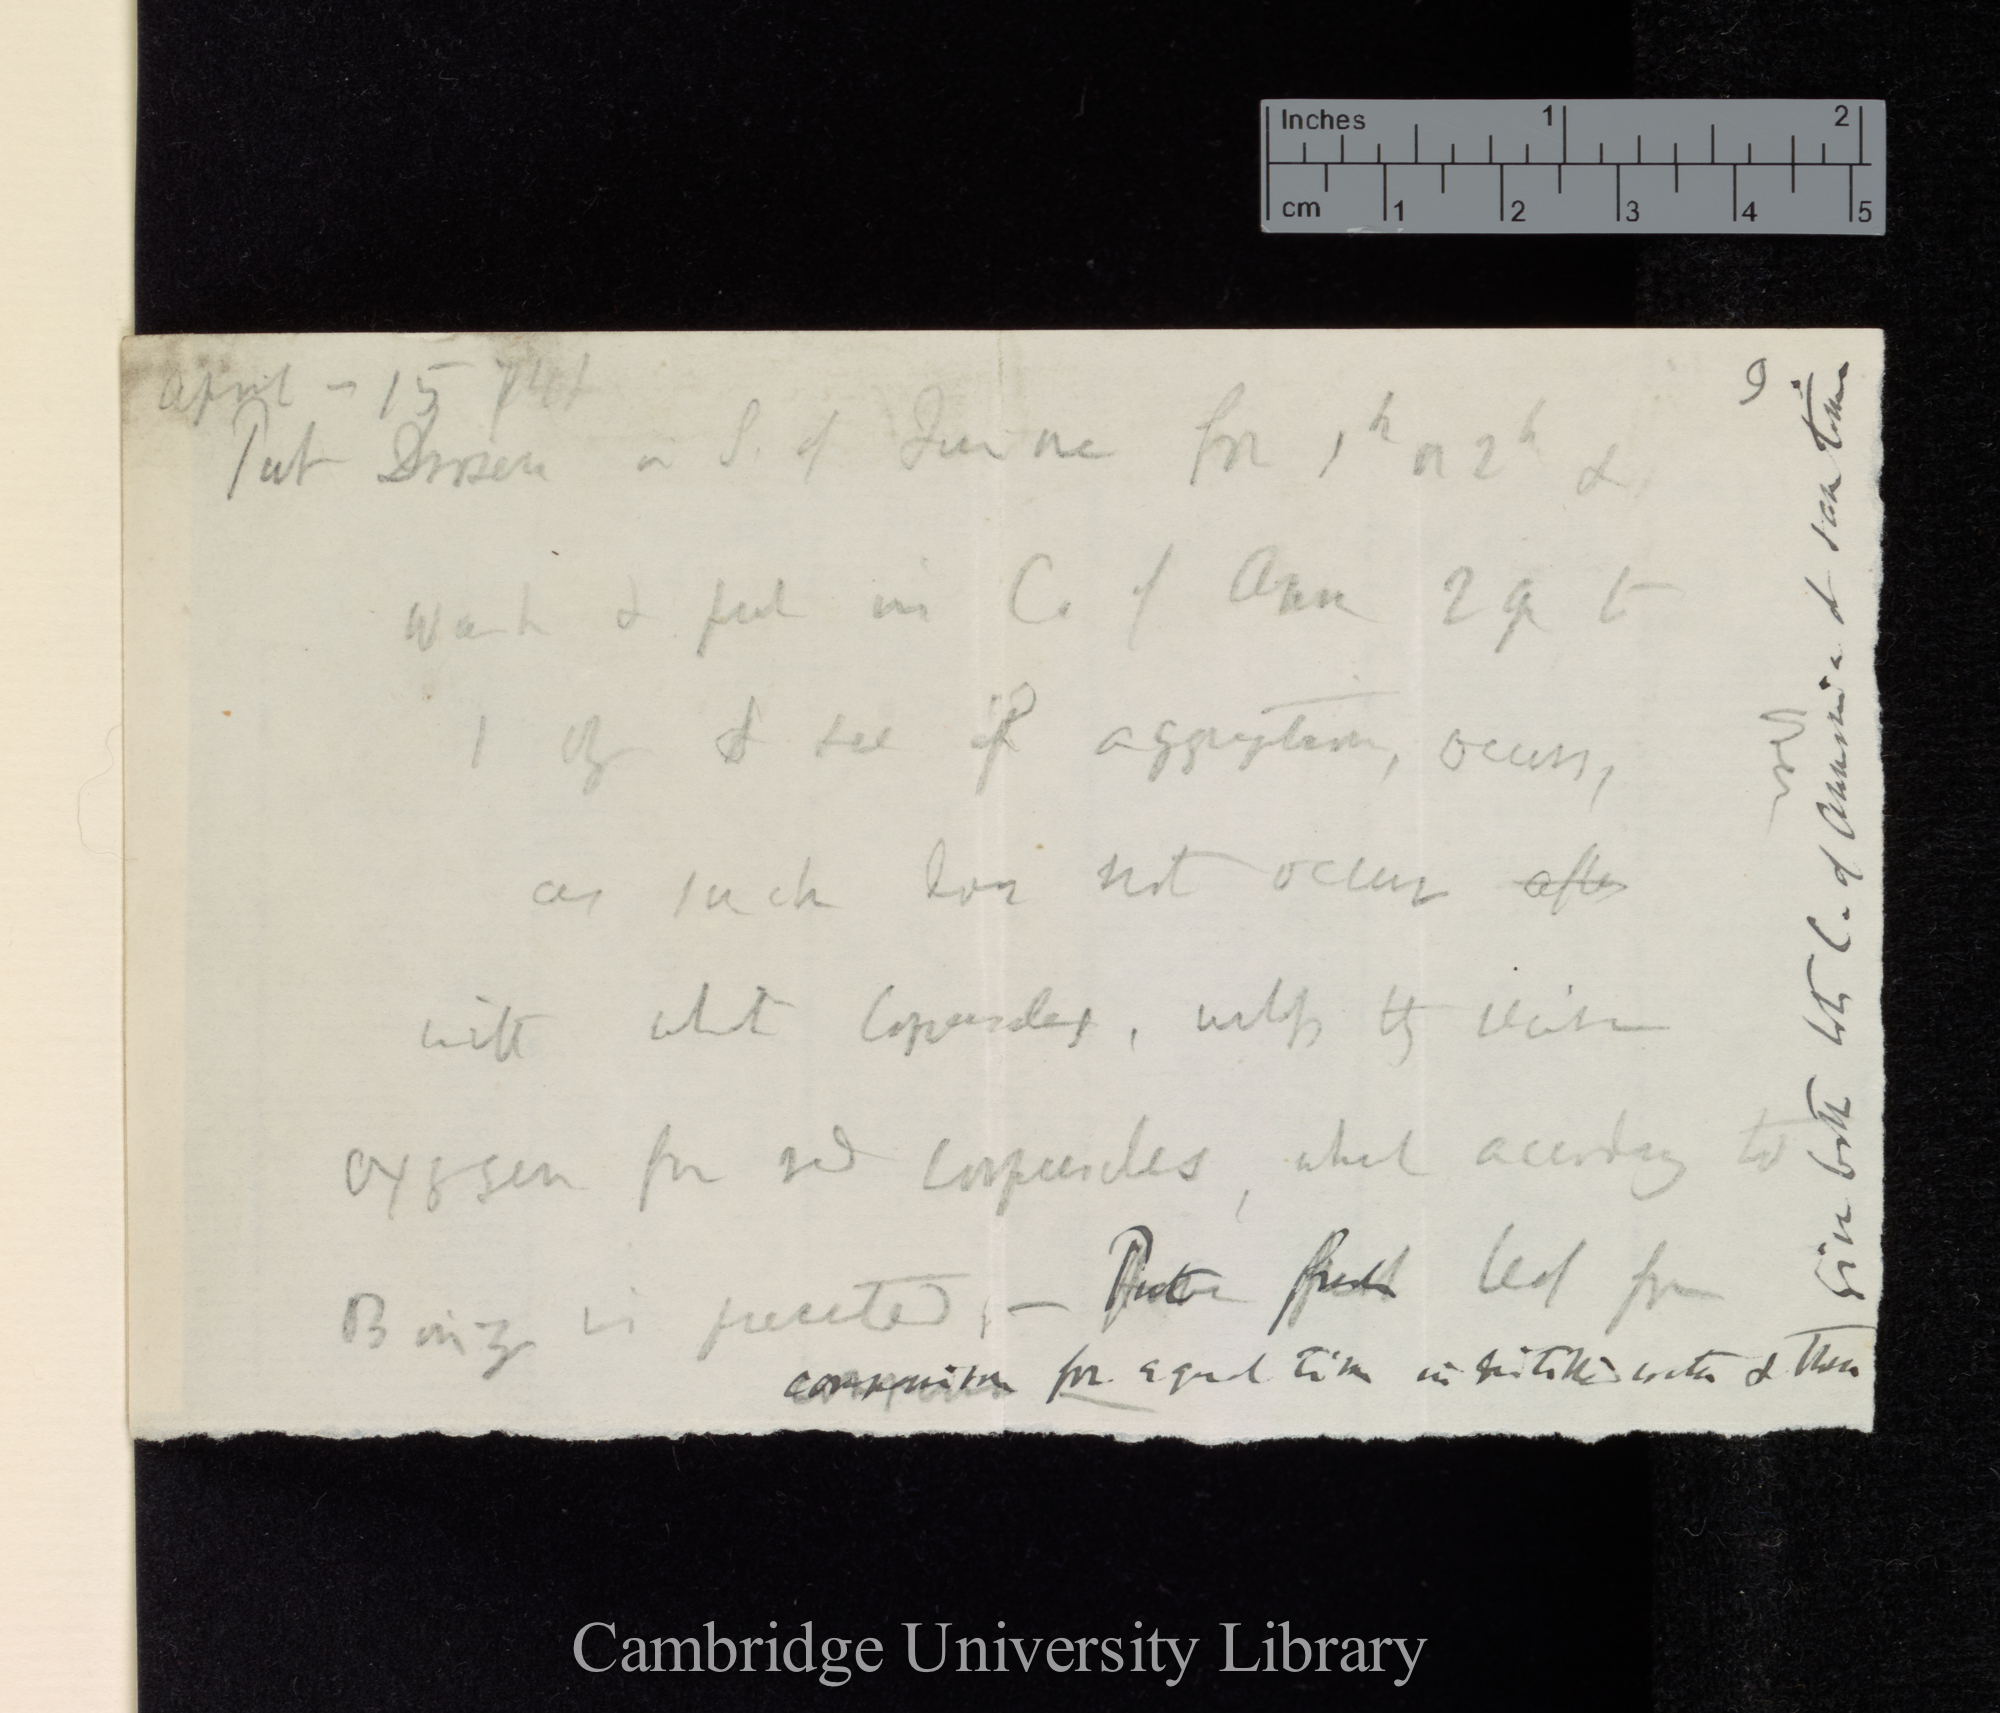 Inches 1 2
cm 1 2 3 4 5
9
April – 15
Put Drosera in S. of Quinine for 1h or 2h &
wash & put in C. of Amm 2 gr to
1 oz & see if aggregation, occurs,
as such does not occur after
with white corpuscles, nor
oxygen for red corpuscles, which according to
Binz is – Put fresh leaf for
comparison for equal time in distilled water & then
give both with C. of Ammonia & same time
Cambridge University Library